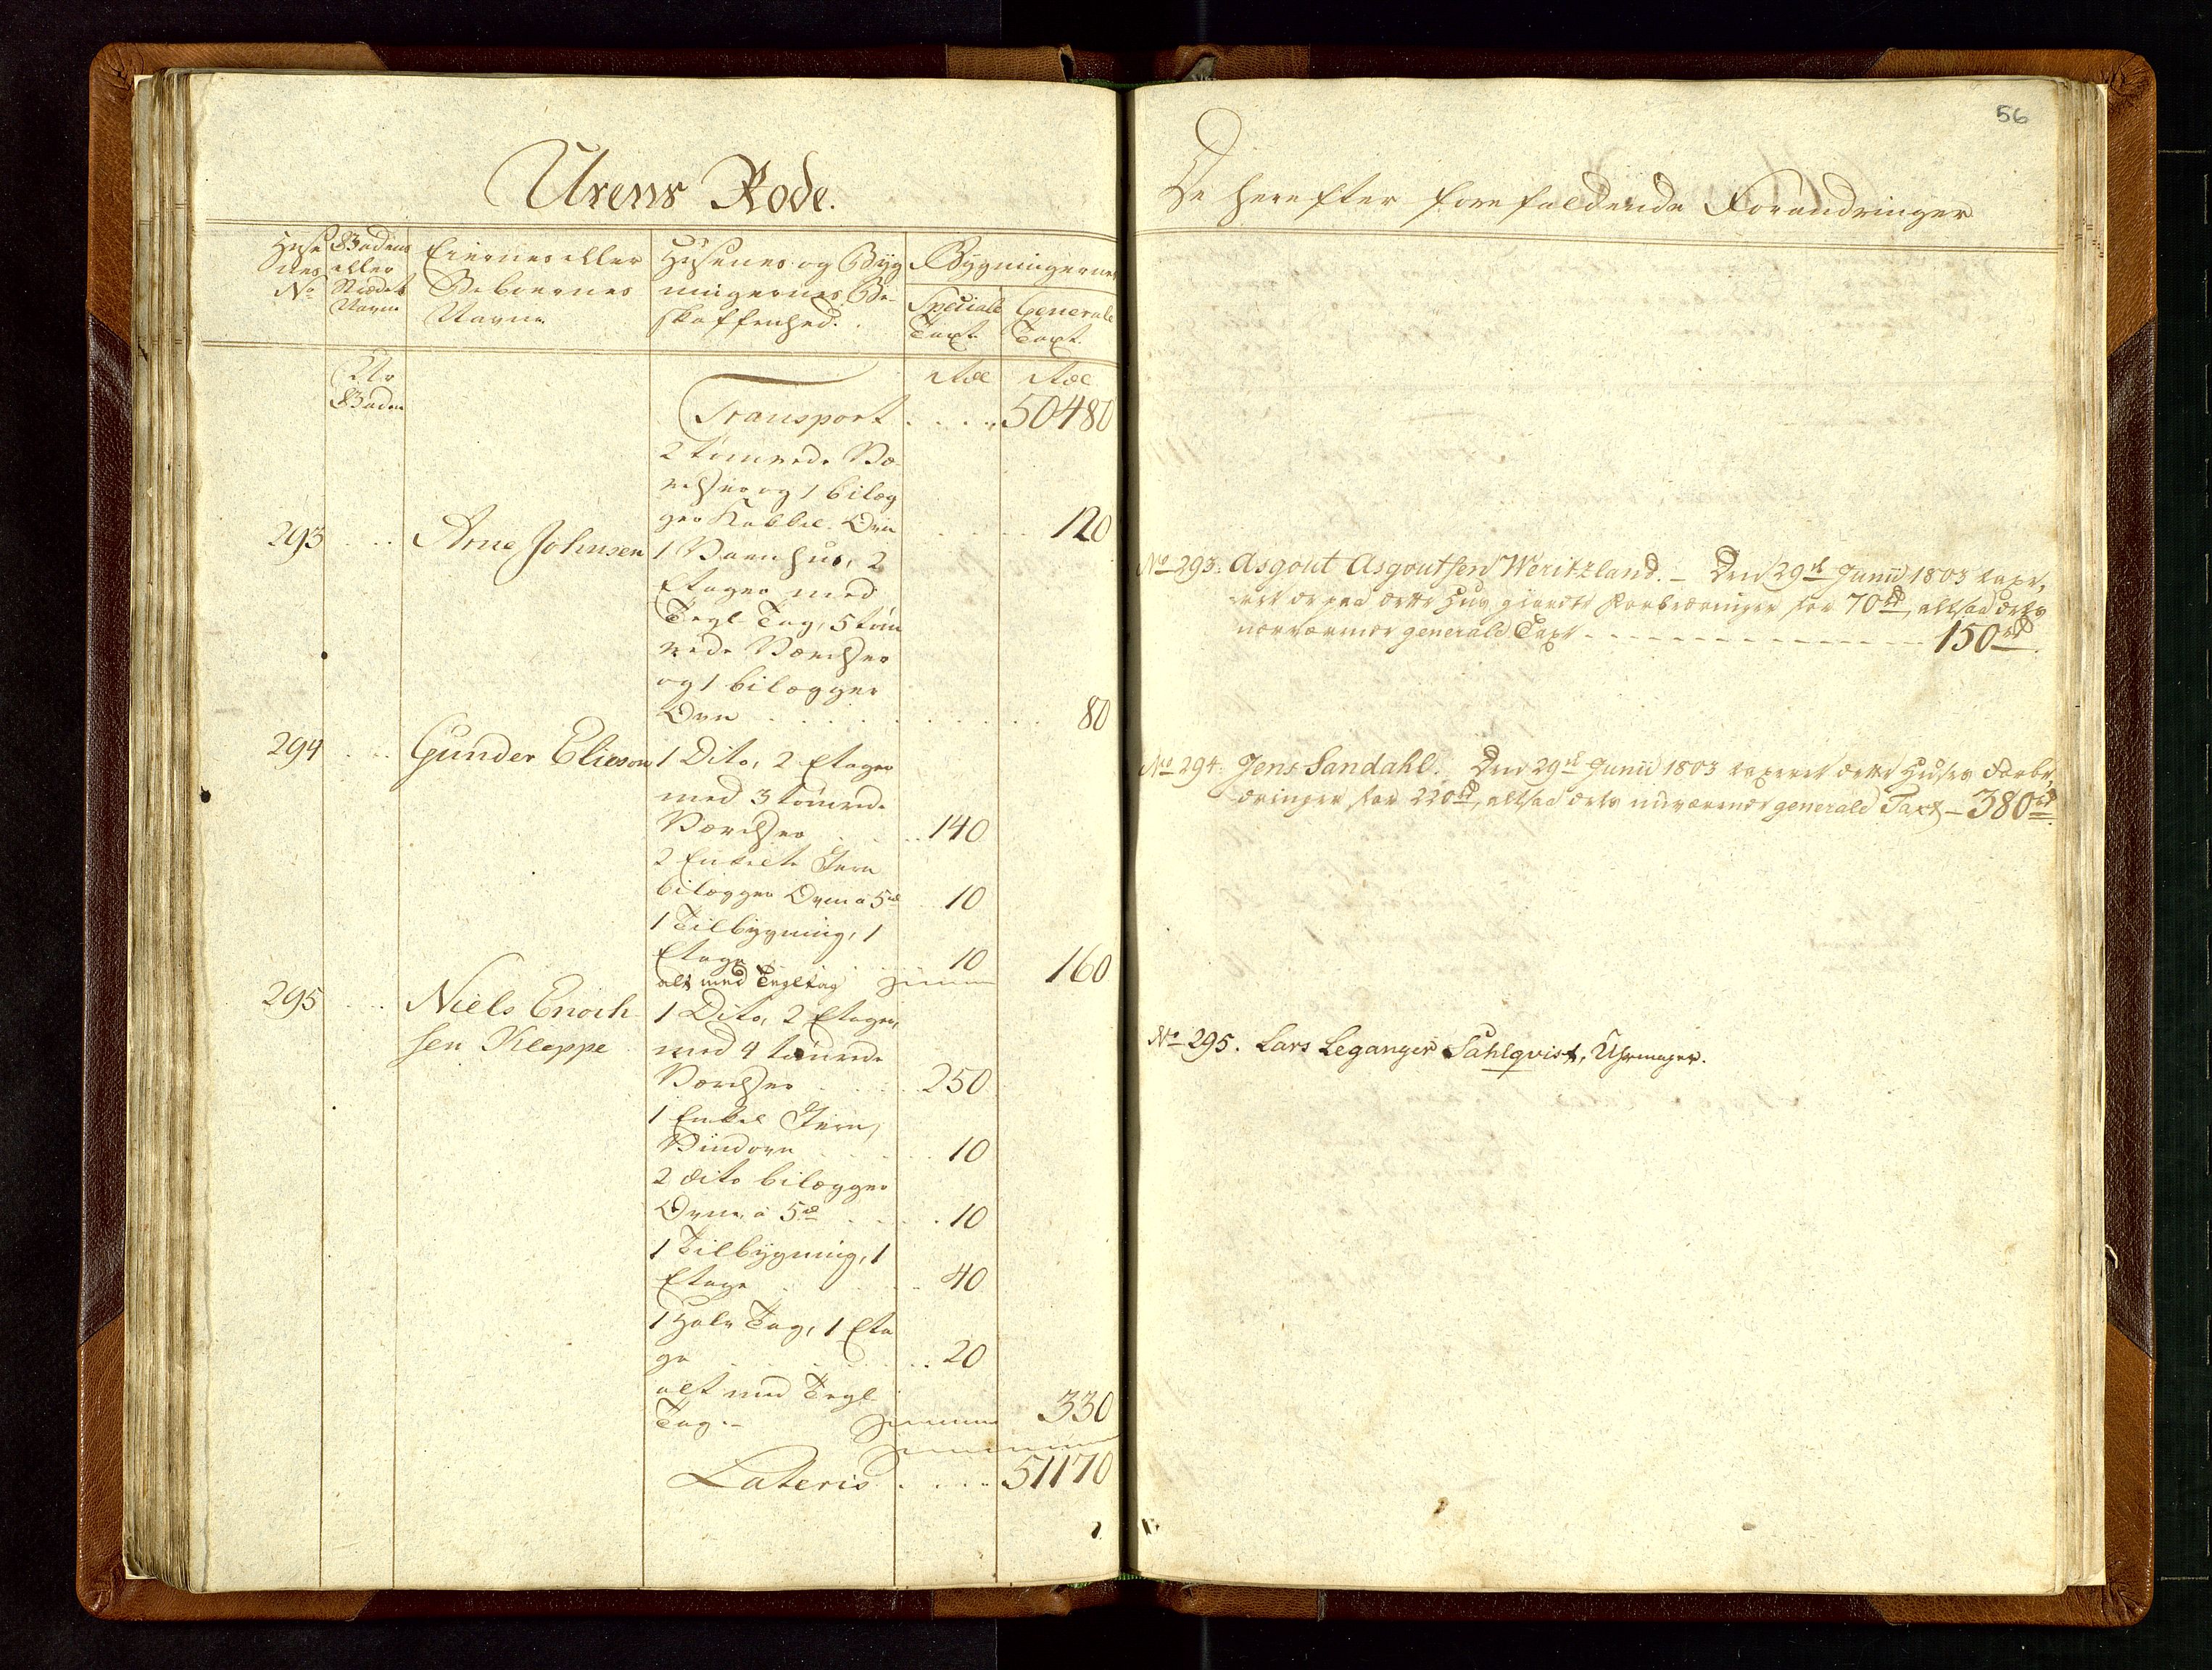 Urens Rode.
Huse
nes
No
Gadens
eller
Stædets
Navne
Eiernes eller
Beboernes
Navne
Husenes og Byg
ningernes Be-
skaffenhed.
Bygningernes
Speciale
Taxt
Generale
Taxt.
Gaden
Rdl Rdl
Transport . . . . 50480
2 tömrede Væ-
relser og 1 bilæg
ger Kakkel Ovn . . . 120
293 . . . Arne Johnsen 1 Vaanhus, 2
Etager med
Tegl Tag, 5 töm
rede Værelser
og 1 bilægger
Ovn . . . . . . . 80
294 . . . Gunder Elieson 1 Dito, 2 Etager
med 3 tömrede
Værelser . . . 140
2 Enkelte Jern
bilægger Ovne a 5rd . 10
1 Tilbÿgning, 1
Etage . . . 10 160
alt med Tegltag Summa
295 . . . Niels Enoch 1 Dito, 2 Etager,
sen Kleppe med 4 tömrede
Værelser . . . 250
1 Enkel Jern
Vindovn . . . 10
2 dito bilægger
Ovne, a 5rd . . . 10
1 Tilbÿgning, 1
Etage . . . 40
1 Halv Tag, 1 Eta
ge . . . 20
alt med Tegl
Tag.- Summa 330
Lateris . . . . 51170
56
De herefter forefaldende Forandringer
No 293. Asgout Asgoutsen Weritzland. - Den 29de Junii 1803 taxe,
ret de paa dette Huus giorte Forbedringer for 70rd, altsaa dets
nærværende generale Taxt - - - - - 150rd.
No 294. Jens Sandahl. Den 29de Junii 1803 taxeret dette Huses Forbe,
dringer for 220rd, altsaa dets nuværende generale Taxt - 380rd.
No 295. Lars Leganger Sahlqvist, Uhrmager.